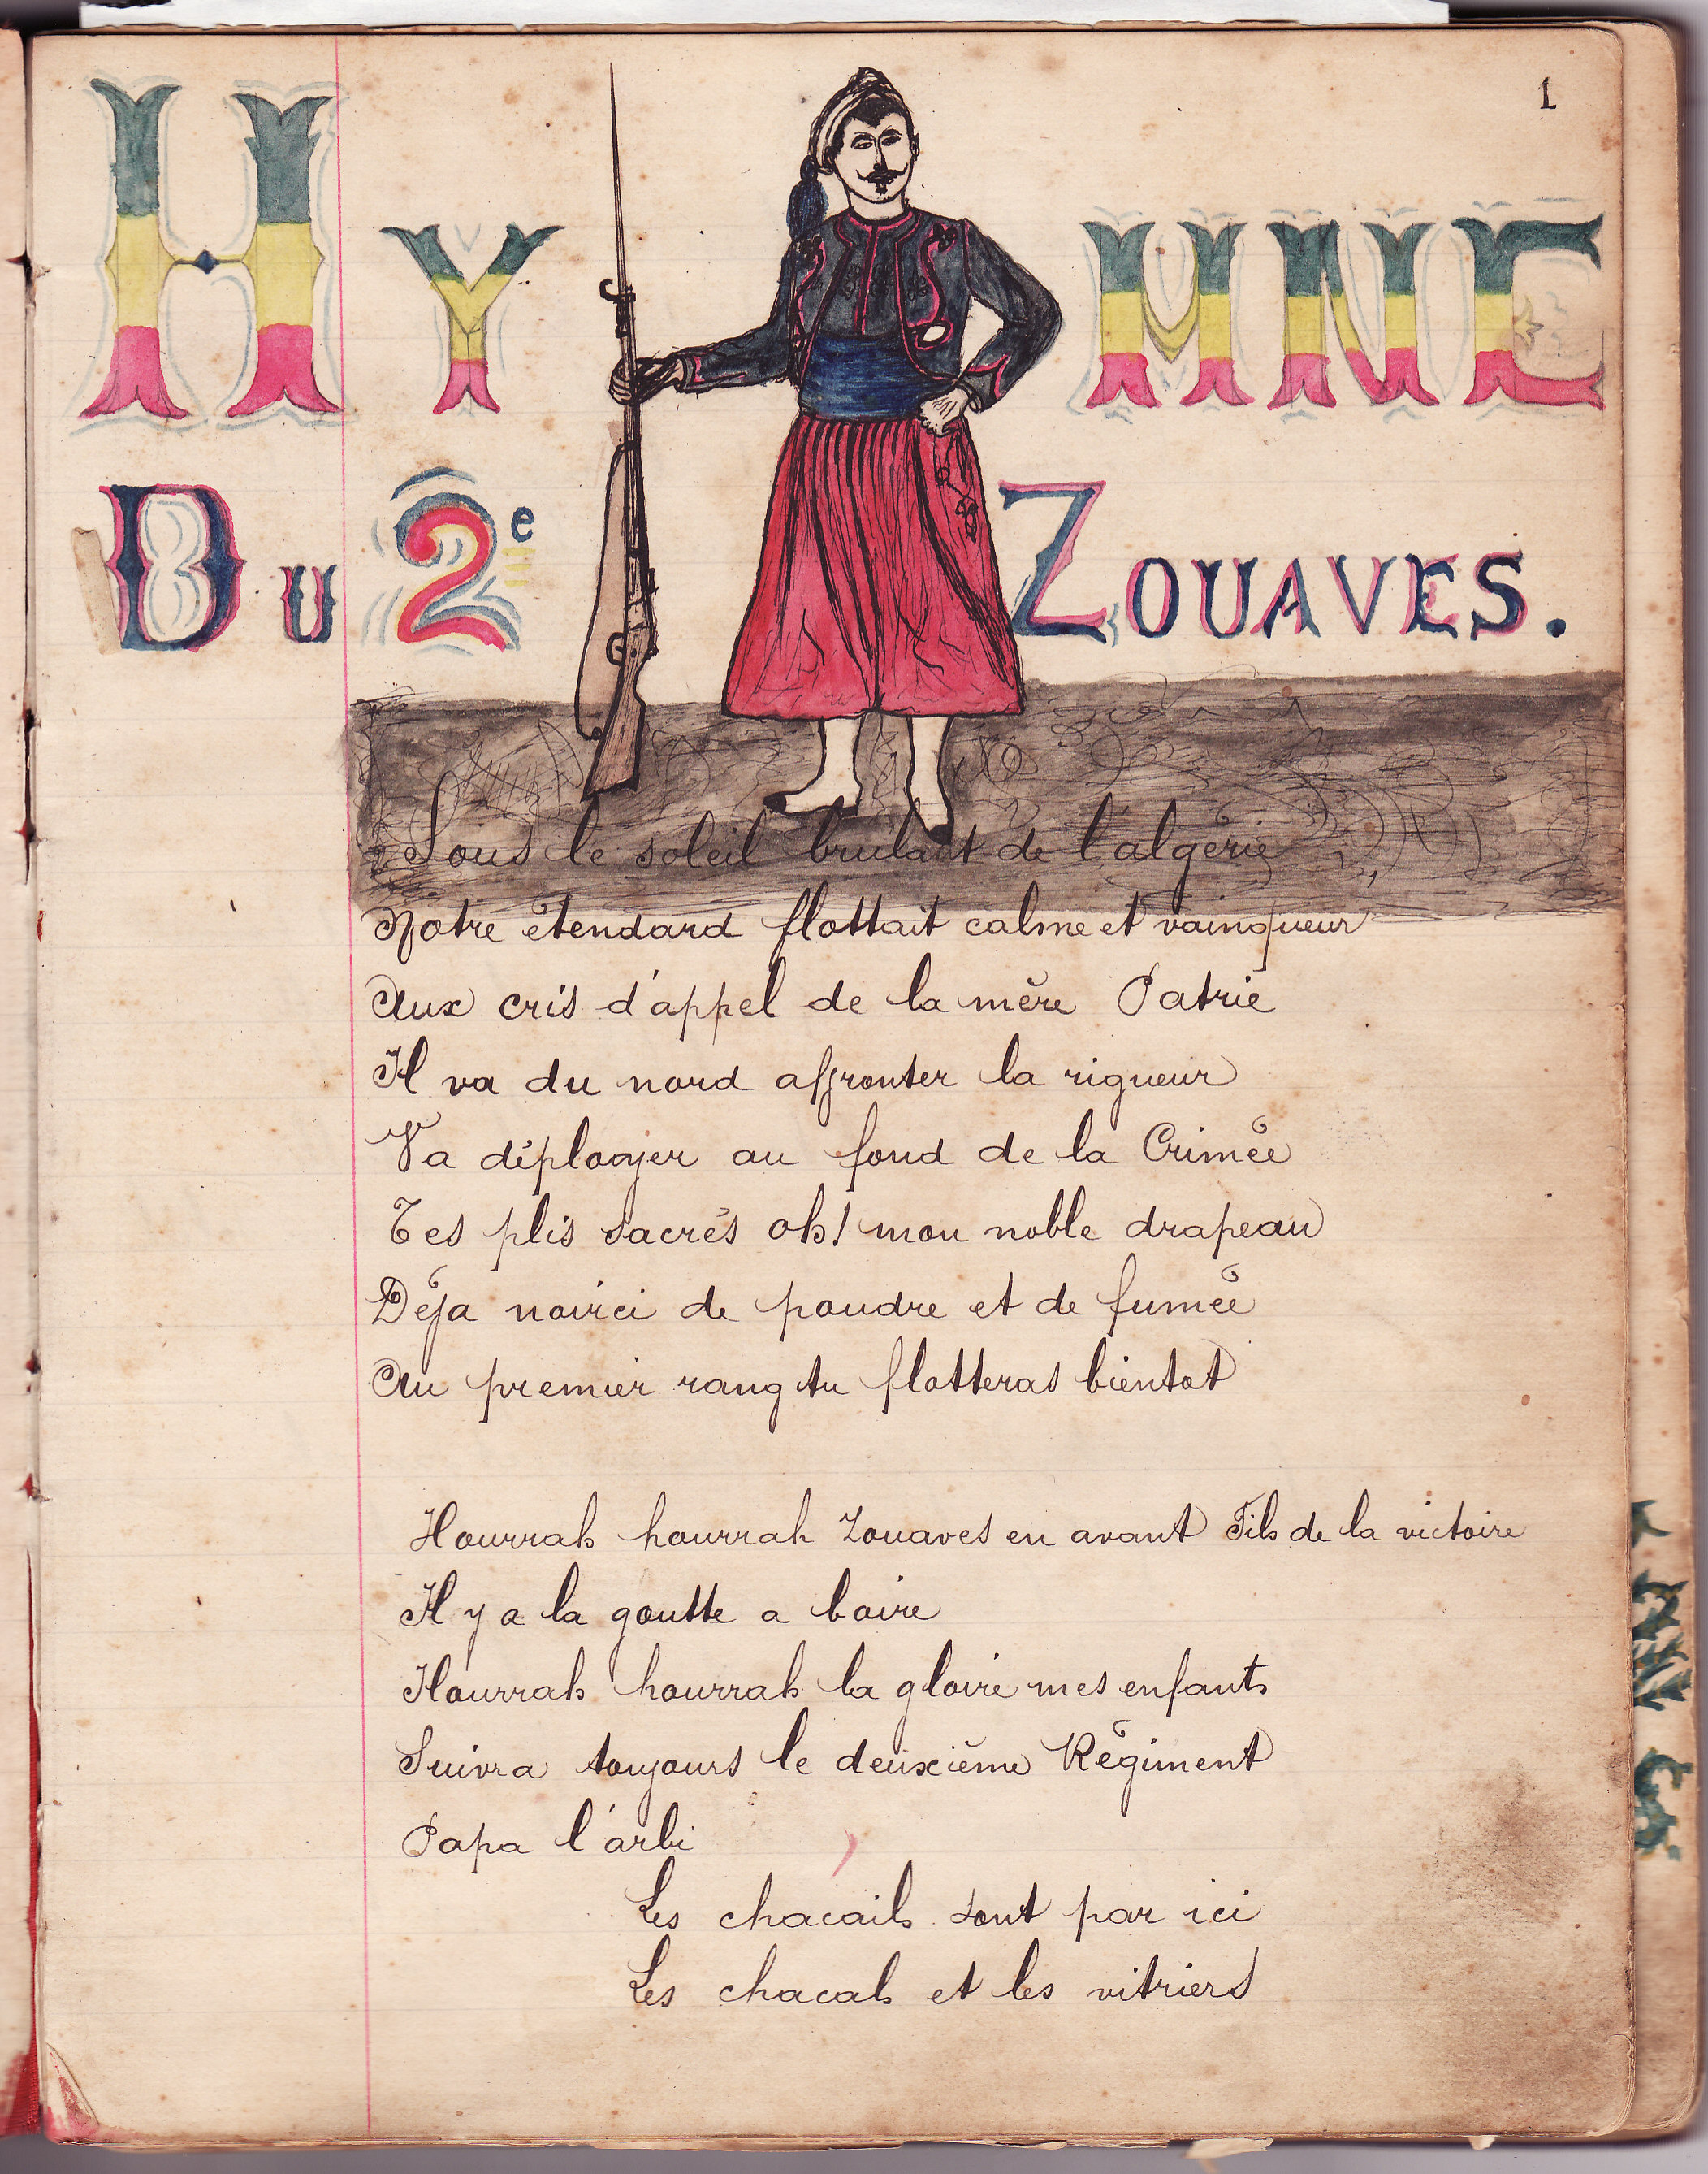 1
HYMNE
DU 2e ZOUAVES.
Sous le soleil brulant de l'algérie
Notre étendard flottait calme et vainqueur
Aux cris d'appel de la mère Patrie
Il va du nord affronter la rigueur
Va déployer au fond de la Crimée
Tes plis sacrés oh! mon noble drapeau
Déja noirci de poudre et de fumée
Au premier rang tu flotteras bientot
Hourrah hourrah Zouaves en avant Fils de la victoire
Il y a la goutte a boire
Hourrah hourrah la gloire mes enfants
Suivra toujours le deuxième Régiment
Papa l'arbi
Les chacails sont par ici
Les chacals et les vitriers